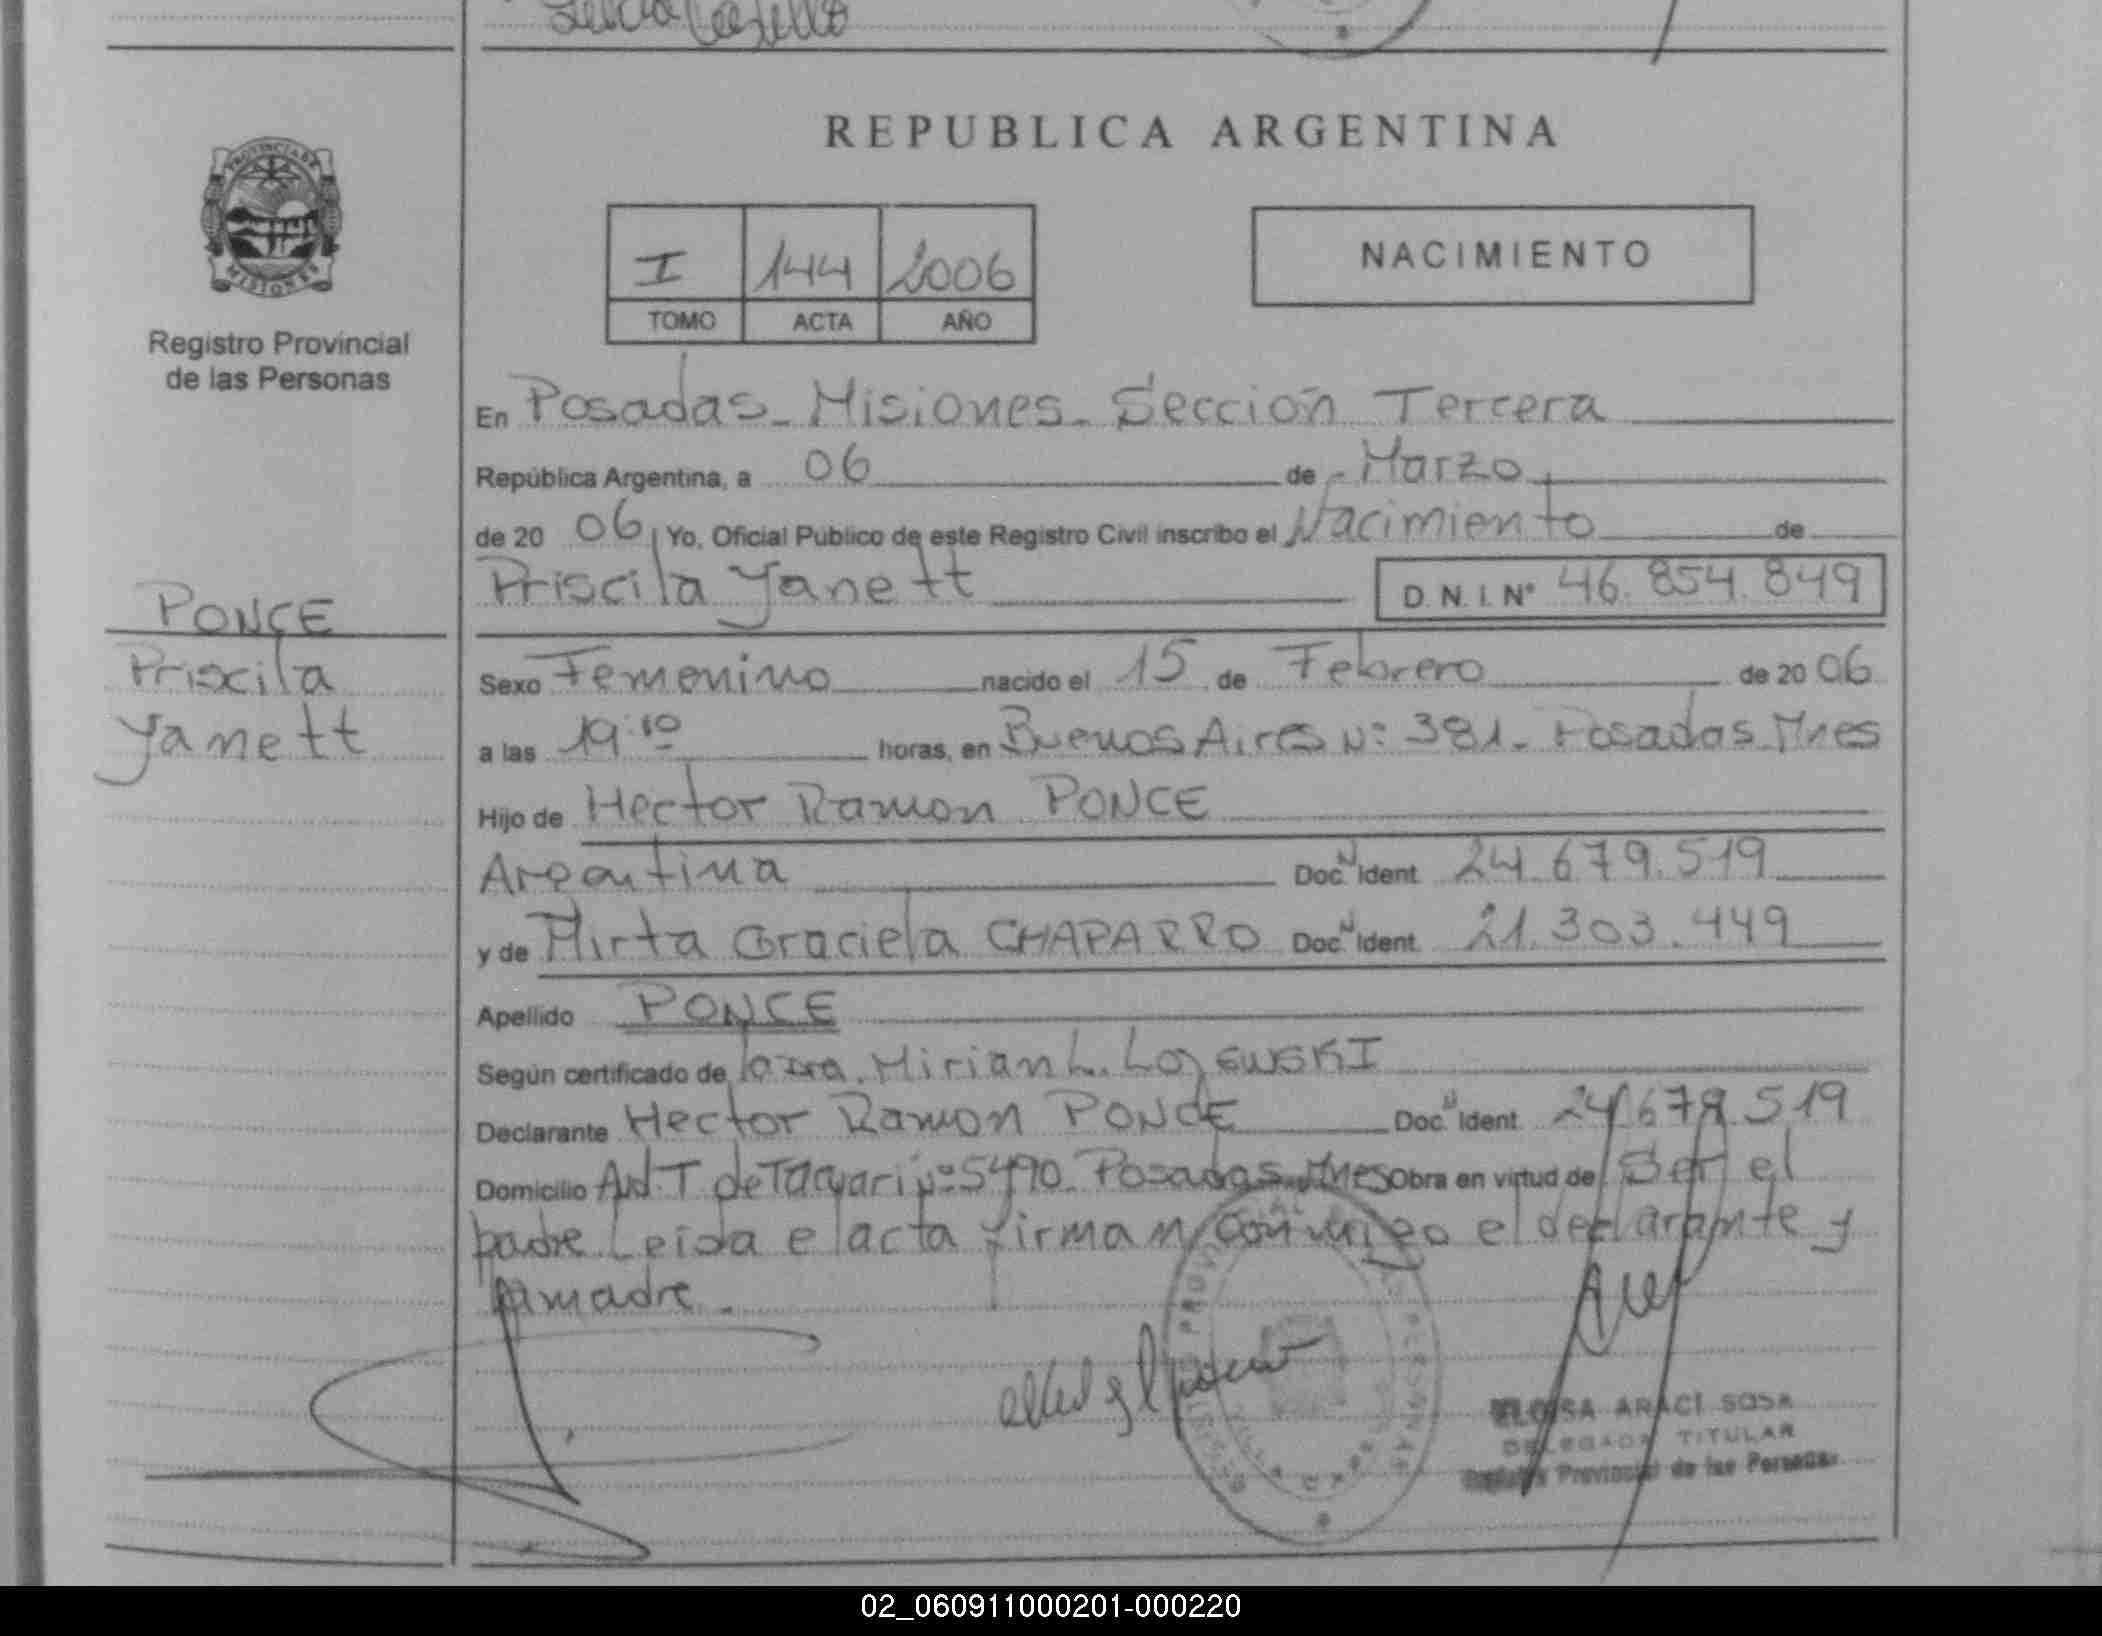 REPUBLICA ARGENTINA
PROVINCIA DE
MISIONES
Registro Provincial
de las Personas
I 144 2006
TOMO ACTA AÑO
NACIMIENTO
En Posadas - Misiones - Sección Tercera
República Argentina, a 06 de - Marzo
de 20 06, Yo, Oficial Público de este Registro Civil inscribo el Nacimiento de
Priscila Yanett D.N.I. Nº 46.854.849
PONCE
Priscila
Yanett
Sexo Femenino nacido el 15 de Febrero de 20 06
a las 19:10 horas, en Buenos Aires Nº 381 - Posadas Mnes
Hijo de Hector Ramon PONCE
Argentina Doc. N Ident. 24.679.519
y de Mirta Graciela CHAPARRO Doc. N Ident. 21.303.449
Apellido PONCE
Según certificado de la Dra. Mirian L. LOJEWSKI
Declarante Hector Ramon PONCE Doc. N Ident. 24.679.519
Domicilio Avd. T de Tacuari Nº 5490 - Posadas Mnes Obra en virtud de Ser el
padre. Leida el acta firman conmigo el declarante y
la madre.
ELOISA ARACI SOSA
DELEGADA TITULAR
Registro Provincial de las Personas
02_060911000201-000220